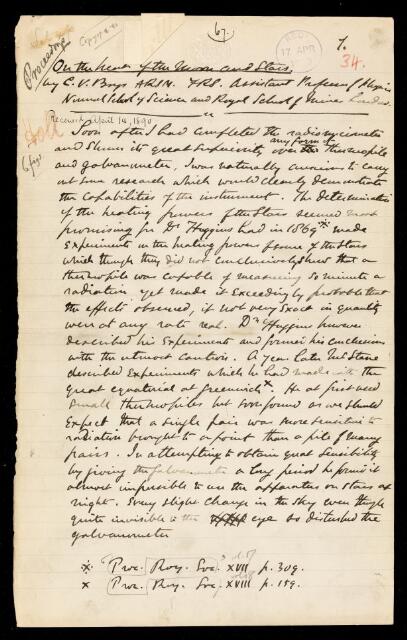 67.
Copy
Proceedings
17 APR
1.
34.
On the heat of the Moon and Stars,
by C. V. Boys A.R.S.M. F.R.S. Assistant Professor of Physics
Normal School of Science and Royal School of Mines London
Received April 14, 1890
Hold
Soon after I had completed the radiomicrometer
and shewn its great superiority over any form of thermopile
and galvanometer, I was naturally anxious to carry
out some research which would clearly demonstrate
the capabilities of the instrument. The determination
of the heating powers of the Stars seemed most
promising for Dr Huggins had in 1869* made
experiments on the heating power of some of the stars
which though they did not conclusively shew that a
thermopile was capable of measuring so minute a
radiation yet made it exceedingly probable that
the effects observed, if not very exact in quantity
were at any rate real. Dr Huggins however
described his experiments and formed his conclusions
with the utmost caution. A year later Mr Stone
described experiments which he had made with the
great equatorial at Greenwich x. He at first used
small thermopiles but soon found as we should
expect that a single pair was more sensitive to
radiation brought to a point than a pile of many
pairs. In attempting to obtain great sensibility
by giving the galvanometer a long period he found it
almost impossible to use the apparatus on stars at
night. Every slight change in the sky even though
quite invisible to the eye so disturbed the
galvanometer
* Proc. Roy. Soc. vol. XVII p. 309.
x Proc. Roy. Soc. vol. XVIII p. 159.